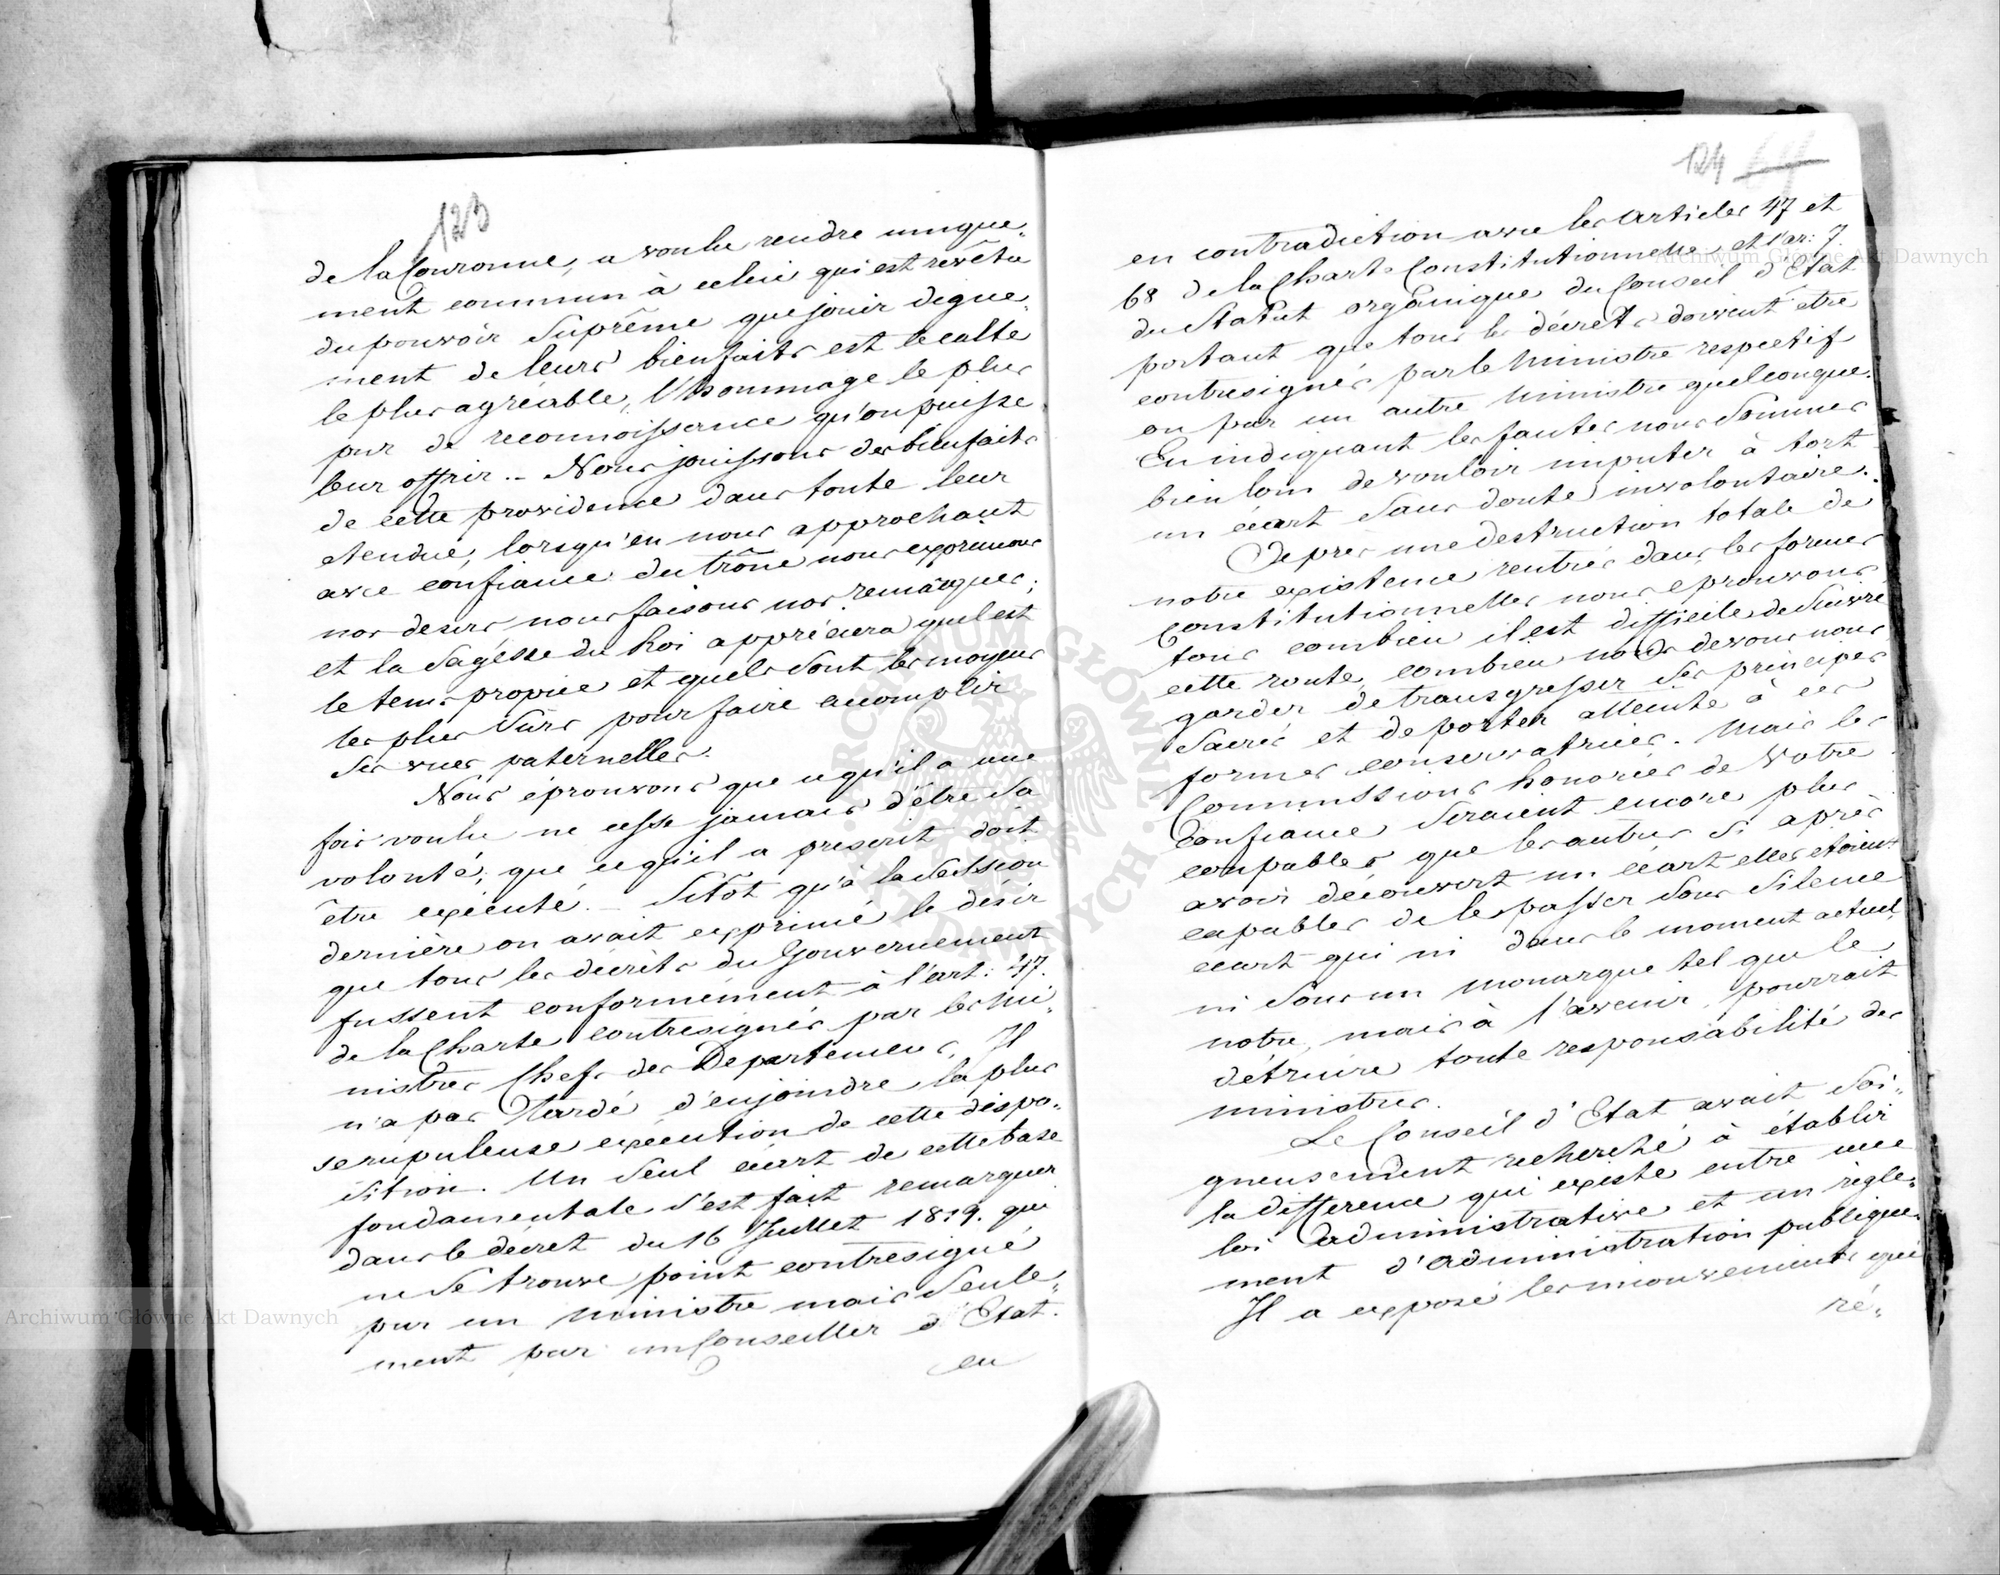 123
de la Couronne, a voulu rendre unique„
ment commun à celui qui est revêtu
du pouvoir Suprême que jouir digne„
ment de leurs bienfaits est le culte
le plus agréable, l'hommage le plus
pur de reconnoissance qu'on puisse
leur offrir.– Nous jouissons des bienfaits
de cette providence dans toute leur
etendue, lorsqu'en nous approchant
avec confiance du trône nous exprimons
nos desirs nous faisons nos remarques;
et la Sagesse du Roi appréciera quel est
le tems propice et quels sont les moyens
les plus Sûrs pour faire accomplir
Ses vues paternelles.
Nous éprouvons que ce qu'il a une
fois voulu ne cesse jamais d'être Sa
volonté; que ce qu'il a prescrit doit
être exécuté. – Sitôt qu'à la Session
dernière on avait exprimé le désir
que tous les décrèts du Gouvernement
fussent conformément à l'art: 47.
de la Charte contresignés par les Mi„
nistres Chefs des Departemens, Il
n'a pas tardé d'enjoindre la plus
scrupuleuse exécution de cette dispo„
sition. Un Seul écart de cette base
fondamentale S'est fait remarquer
dans le décret du 16 Juillet 1819. qui
ne Se trouve point contresigné
par un Ministre mais Seule„
ment par un Conseiller d'Etat.
en
124
en contradiction avec les articles 47 et
68 de la Charte Constitutionnelle, et l'ar: 7.
du Statut organique du Conseil d'Etat
portant que tous les décrets doivent être
contresignés par le Ministre respectif
ou par un autre Ministre quelconque.
En indiquant les fautes nous Sommes
bien loin de vouloir imputer à tort
un écart Sans doute involontaire.
De près une destruction totale de
notre existence rentrés dans les formes
constitutionnelles nous eprouvons
tous combien il est difficile de Suivre
cette route, combien nous devons nous
garder de transgresser Ses principes
Sacrés et de porter atteinte à ces
formes conservatrices. Mais les
Commissions honorées de Votre
Confiance Seraient encore plus
coupables que les autres Si après
avoir découvert un écart elles etoient
capables de le passer Sous Silence
écart qui ni dans le moment actuel
ni Sous un monarque tel que le
notre, mais à l'avenir pourrait
détruire toute responsabilité des
ministres.
Le Conseil d'Etat avait Soi„
gneusement recherché à établir
la différence qui existe entre une
loi administrative et un règle„
ment d'administration publique.
Il a exposé les mouvements qui
ré„
Archiwum Główne Akt Dawnych
Archiwum Główne Akt Dawnych
ARCHIWUM GŁÓWNE AKT DAWNYCH